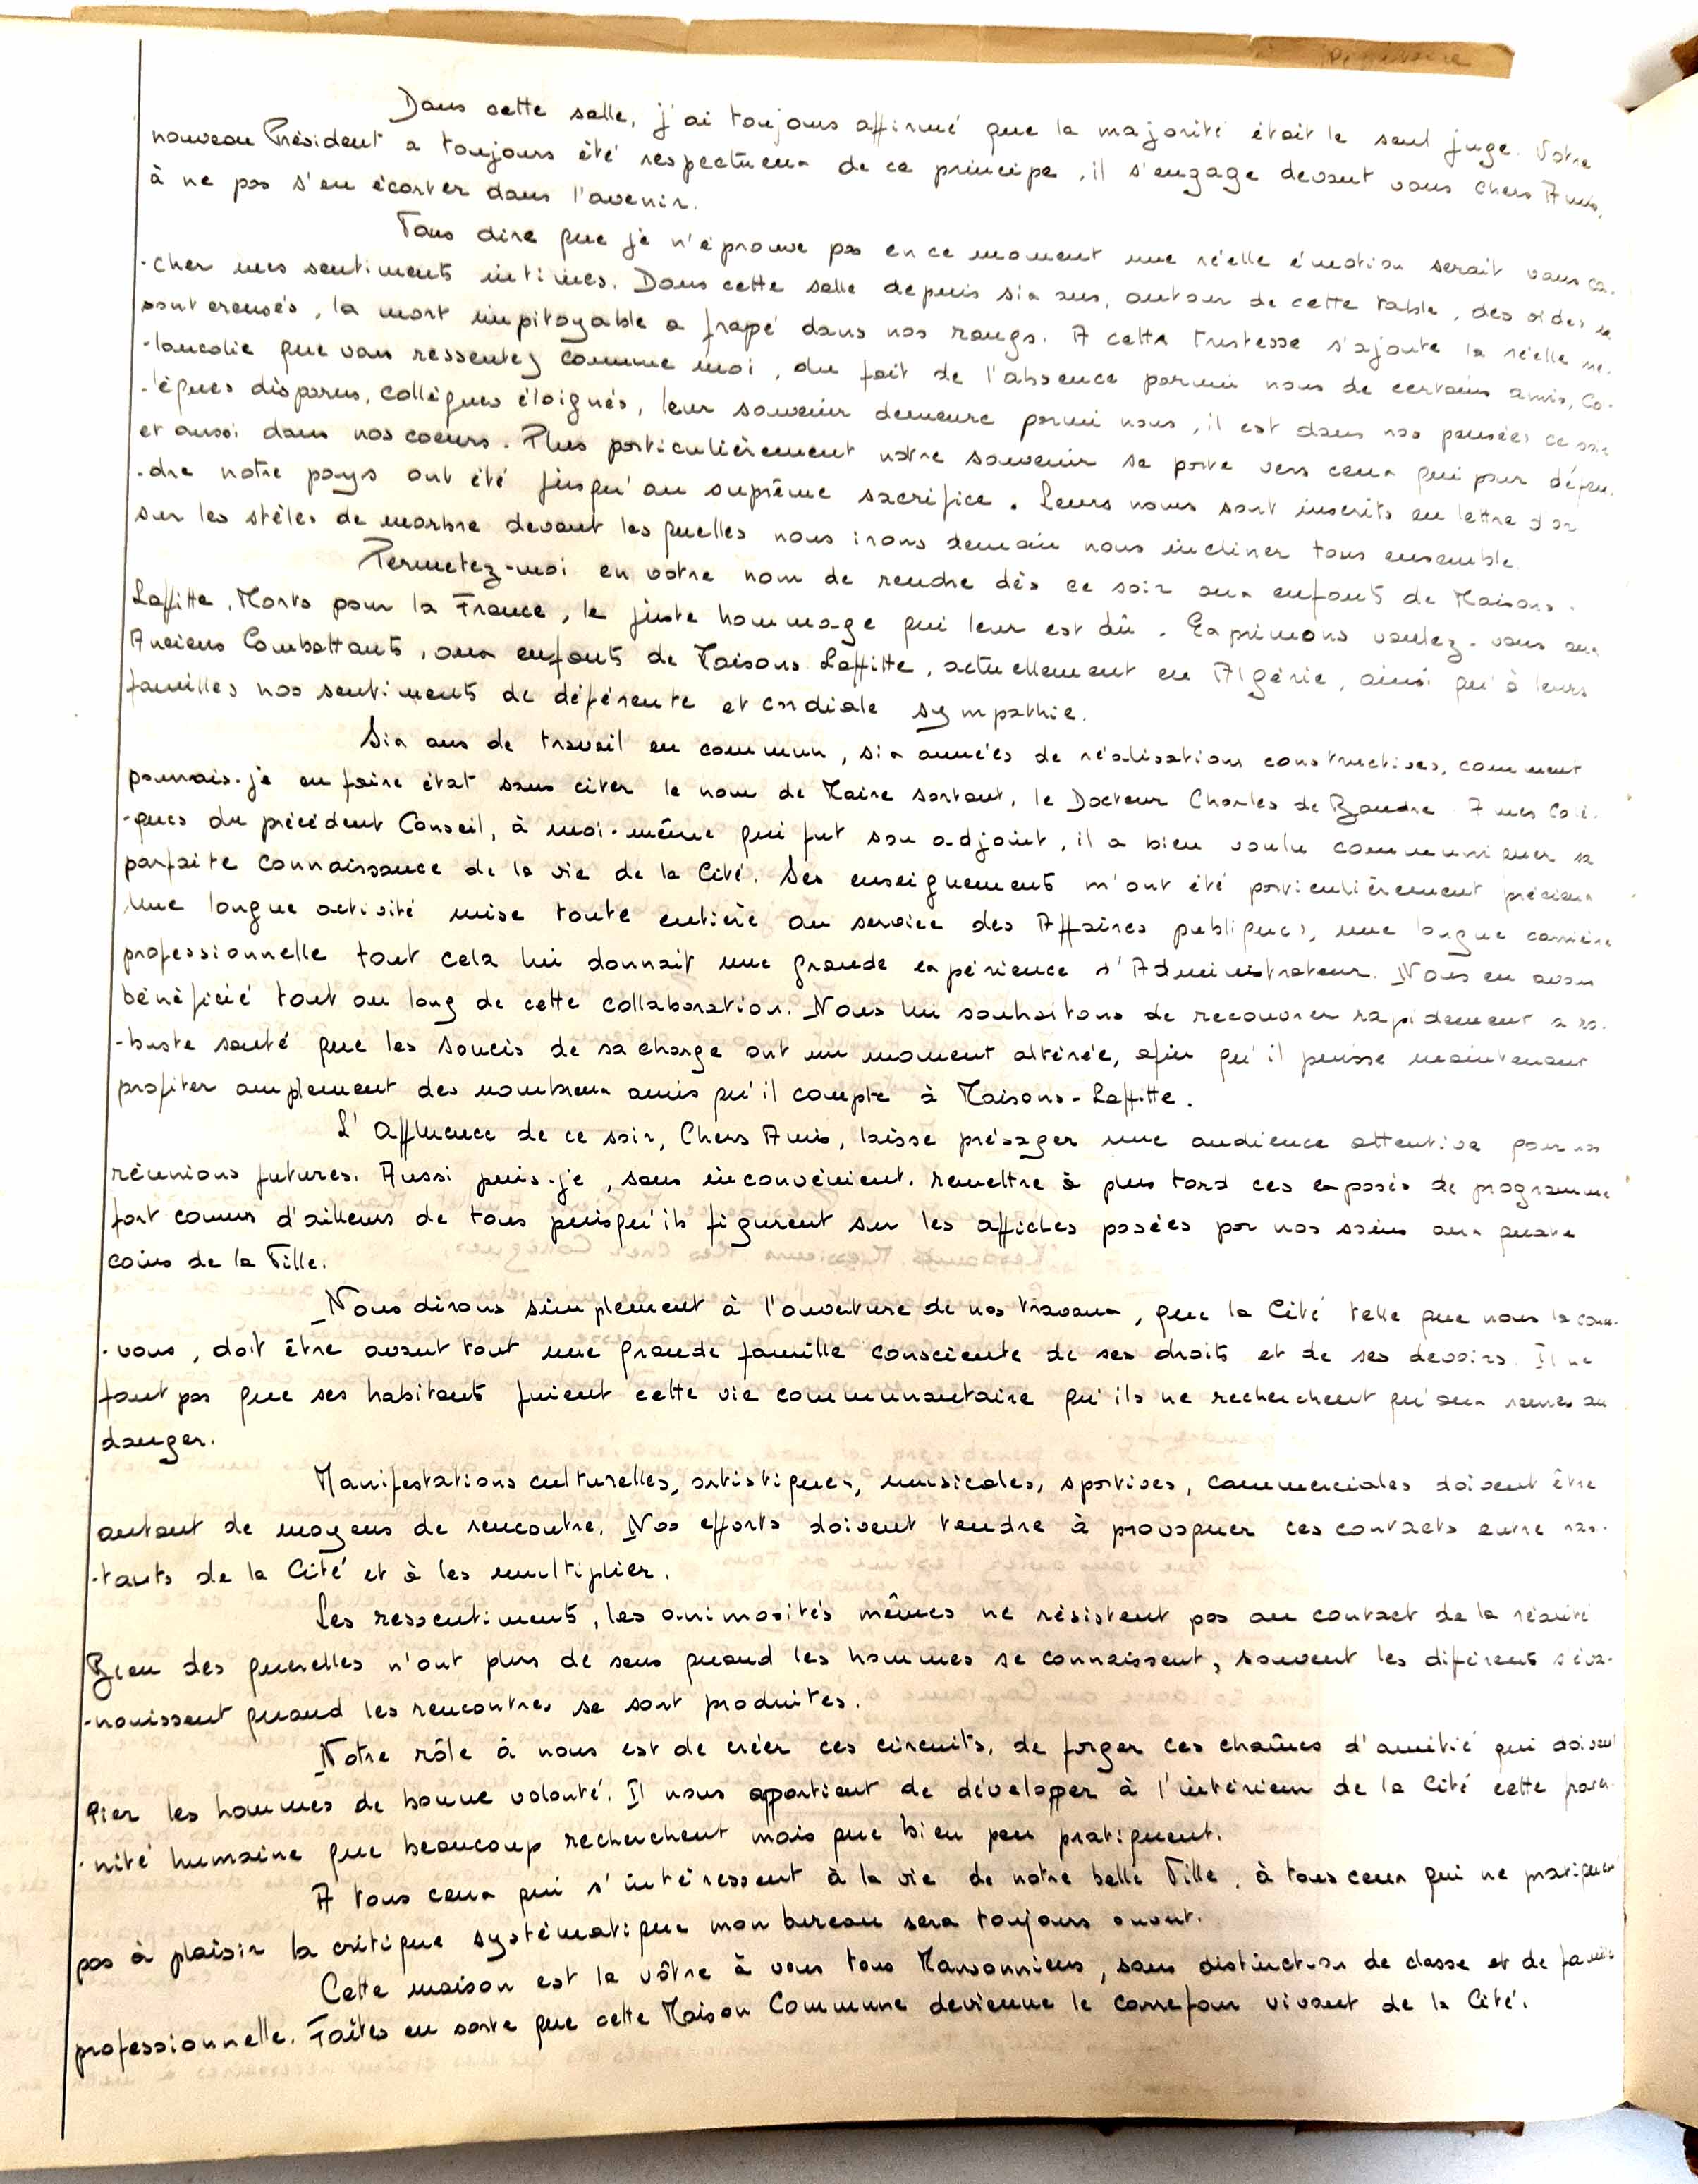 Dans cette salle, j'ai toujours affirmé que la majorité était le seul juge. Votre
nouveau Président a toujours été respectueux de ce principe, il s'engage devant vous Chers Amis,
à ne pas s'en écarter dans l'avenir.
Vous dire que je n'éprouve pas en ce moment une réelle émotion serait vous ca-
-cher mes sentiments intimes. Dans cette salle depuis six ans, autour de cette table, des vides se
sont creusés, la mort impitoyable a frapé dans nos rangs. A cette tristesse s'ajoute la réelle mé-
-lancolie que vous ressentez comme moi, du fait de l'absence parmi nous de certains amis, Co-
-lègues disparus, collègues éloignés, leur souvenir demeure parmi nous, il est dans nos pensées ce soir
et aussi dans nos coeurs. Plus particulièrement notre souvenir se porte vers ceux qui pour défen-
-dre notre pays ont été jusqu'au suprême sacrifice. Leurs noms sont inscrits en lettre d'or
sur les stèles de marbre devant lesquelles nous irons demain nous incliner tous ensemble.
Permetez-moi en votre nom de rendre dès ce soir aux enfants de Maisons-
Laffitte, Morts pour la France, le juste hommage qui leur est dû. Exprimons voulez-vous aux
Anciens Combattants, aux enfants de Maisons-Laffitte, actuellement en Algérie, ainsi qu'à leurs
familles nos sentiments de déférente et cordiale sympathie.
Six ans de travail en commun, six années de réalisations constructives, comment
pourrais-je en faire état sans citer le nom de Maire sortant, le Docteur Charles de Baudre. A mes Collè-
-gues du précédent Conseil, à moi-même qui fut son adjoint, il a bien voulu communiquer sa
parfaite connaissance de la vie de la Cité. Ses enseignements m'ont été particulièrement précieux
Une longue activité mise toute entière au service des Affaires publiques, une longue carrière
professionnelle tout cela lui donnait une grande expérience d'Administrateur. Nous en avons
bénéficié tout au long de cette collaboration. Nous lui souhaitons de recouvrer rapidement sa ro-
-buste santé que les soucis de sa charge ont un moment altérée, afin qu'il puisse maintenant
profiter amplement des nombreux amis qu'il compte à Maisons-Laffitte.
L'Affluence de ce soir, Chers Amis, laisse présager une audience attentive pour nos
réunions futures. Aussi puis-je, sans inconvénient, remettre à plus tard ces exposés de programme
fort connus d'ailleurs de tous puisqu'ils figurent sur les affiches posées par nos soins aux quatre
coins de la Ville.
Nous dirons simplement à l'ouverture de nos travaux, que la Cité telle que nous la conce-
-vons, doit être avant tout une grande famille consciente de ses droits et de ses devoirs. Il ne
faut pas que ses habitants fuient cette vie communautaire qu'ils ne recherchent qu'aux heures du
danger.
Manifestations culturelles, artistiques, musicales, sportives, commerciales doivent être
autant de moyens de rencontre. Nos efforts doivent tendre à provoquer ces contacts entre habi-
-tants de la Cité et à les multiplier.
Les ressentiments, les animosités mêmes ne résistent pas au contact de la réalité
Bien des querelles n'ont plus de sens quand les hommes se connaissent, souvent les diférents s'éva-
-nouissent quand les rencontres se sont produites.
Notre rôle à nous est de créer ces circuits, de forger ces chaînes d'amitié qui doivent
lier les hommes de bonne volonté. Il nous appartient de développer à l'intérieur de la Cité cette frater-
-nité humaine que beaucoup recherchent mais que bien peu pratiquent.
A tous ceux qui s'intéressent à la vie de notre belle Ville, à tous ceux qui ne pratiquent
pas à plaisir la critique systématique mon bureau sera toujours ouvert.
Cette maison est la vôtre à vous tous Mansonniens, sans distinction de classe et de famille
professionnelle. Faîtes en sorte que cette Maison Commune devienne le carrefour vivant de la Cité.